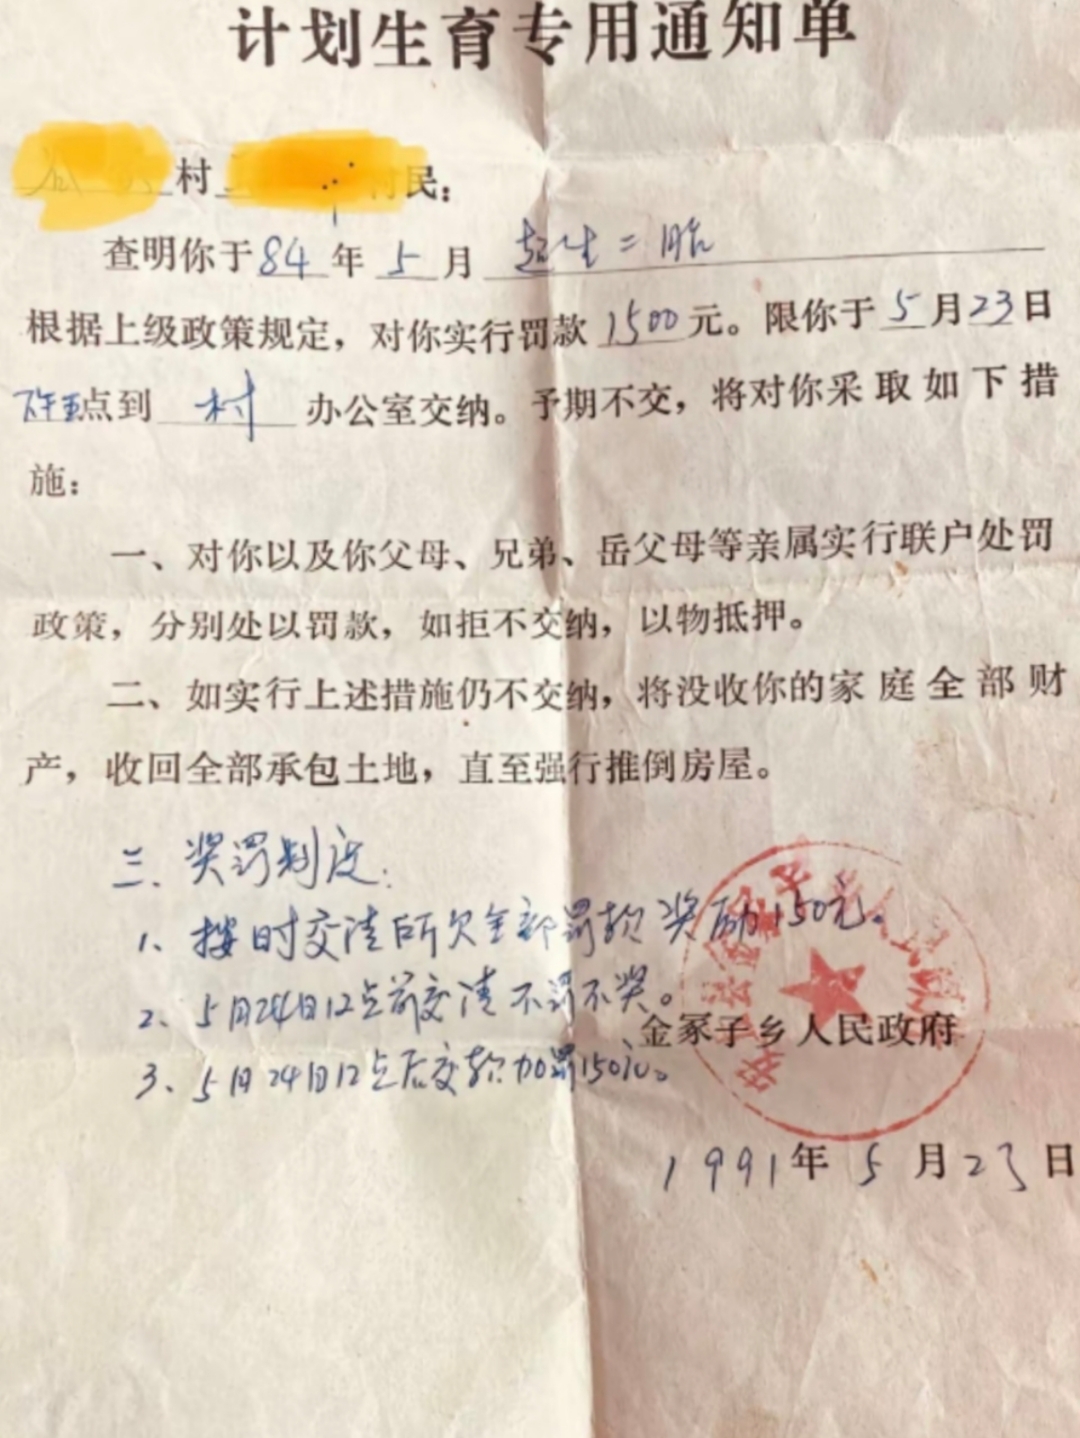 计划生育专用通知单
村 村民：
查明你于84年5月超生二胎
根据上级政策规定，对你实行罚款1500元。限你于5月23日
下午五点到村办公室交纳。予期不交，将对你采取如下措
施：
一、对你以及你父母、兄弟、岳父母等亲属实行联户处罚
政策，分别处以罚款，如拒不交纳，以物抵押。
二、如实行上述措施仍不交纳，将没收你的家庭全部财
产，收回全部承包土地，直至强行推倒房屋。
三、奖罚制度：
1、按时交清所欠全部罚款奖励150元。
2、5月24日12点前交清不罚不奖。
3、5月24日12点后交款加罚150元。
金冢子乡人民政府
1991年5月23日